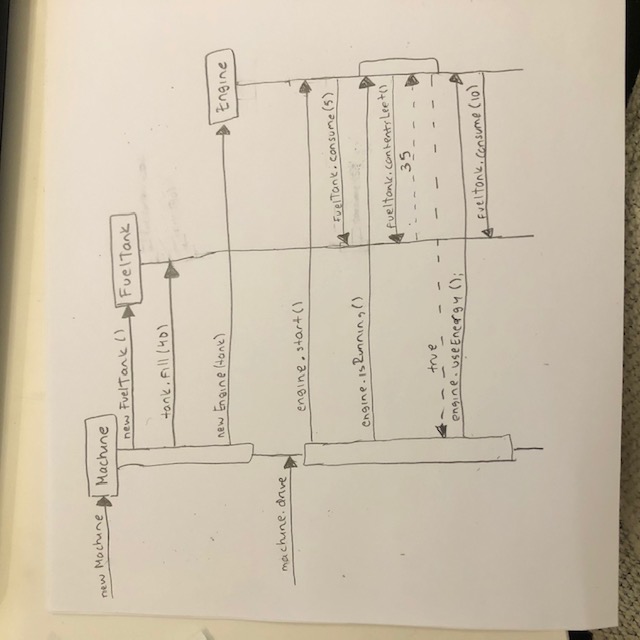 new Machine
Machine
new FuelTank ()
FuelTank
tank.fill (40)
new Engine (tank)
Engine
machine.drive
engine.start()
FuelTank.consume(5)
engine.isRunning()
fueltank.contentsLeft()
35
true
engine.useEnergy ();
Fueltank.consume (10)